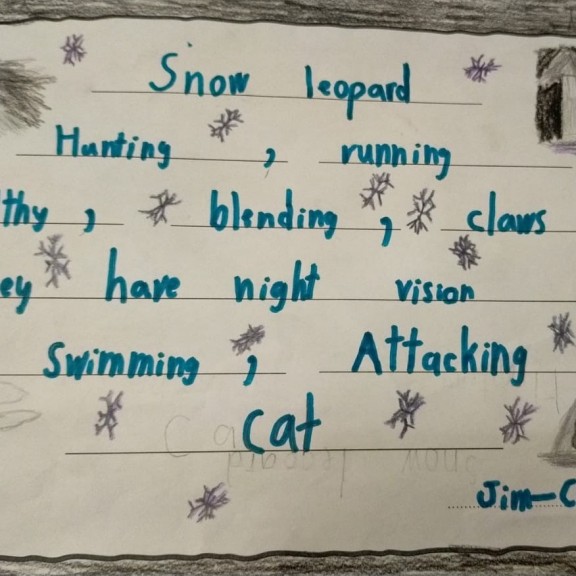 Snow leopard
Hunting, running
thy, blending, claws
ey have night vision
Swimming, Attacking
cat
Jim-C